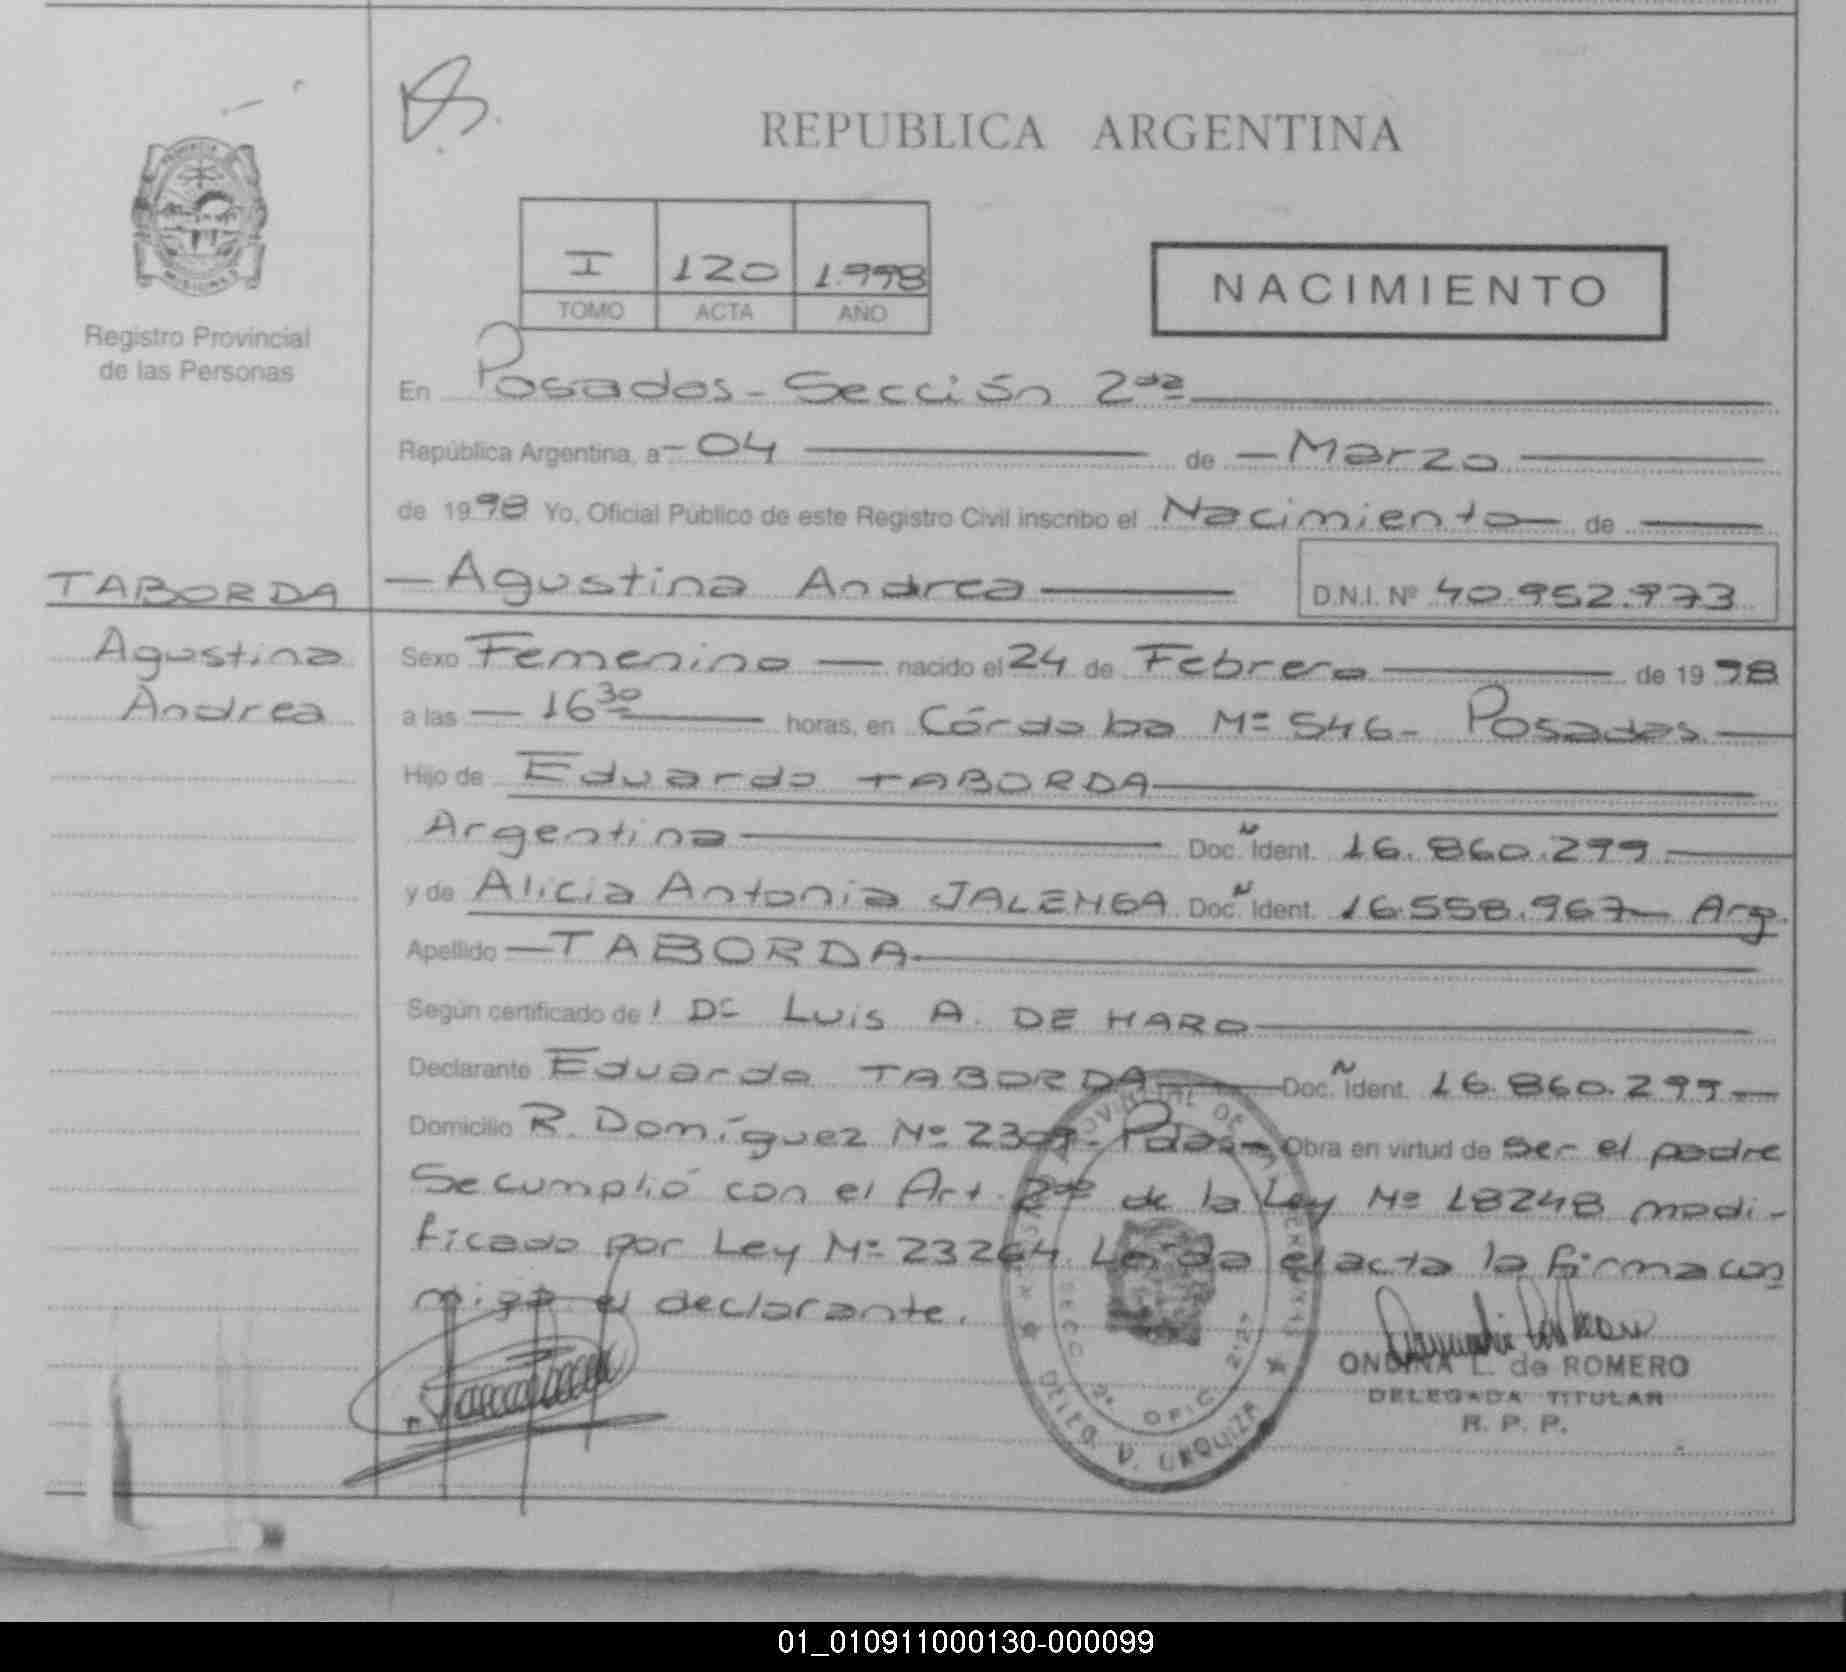 REPUBLICA ARGENTINA
I 120 1.998
TOMO ACTA AÑO
NACIMIENTO
Registro Provincial
de las Personas
En Posadas - Sección 2da
República Argentina, a - 04 de - Marzo
de 1998 Yo, Oficial Público de este Registro Civil inscribo el Nacimiento de
TABORDA
- Agustina Andrea
D.N.I. Nº 40.952.973
Agustina
Andrea
Sexo Femenino nacido el 24 de Febrero de 1998
a las - 16 30 horas, en Córdoba Nº 546 - Posadas
Hijo de Eduardo TABORDA
Argentina Doc. Ident. 16.860.299
y de Alicia Antonia Doc. Ident. 16.558.967 - Arg.
Apellido - TABORDA
Según certificado de Luis A. DE HARO
Declarante Eduardo TABORDA Doc. Ident. 16.860.299
Domicilio R. Domínguez Nº Pdas - Obra en virtud de ser el padre
Se cumplió con el Art. 2do de la Ley Nº 18248 modi-
ficado por Ley Nº 23264. Leída el acta la firma con
migo el declarante.
ONDINA L. de ROMERO
DELEGADA TITULAR
R. P. P.
SECC. 2ª OFIC.
V. URQUIZA
01_010911000130-000099